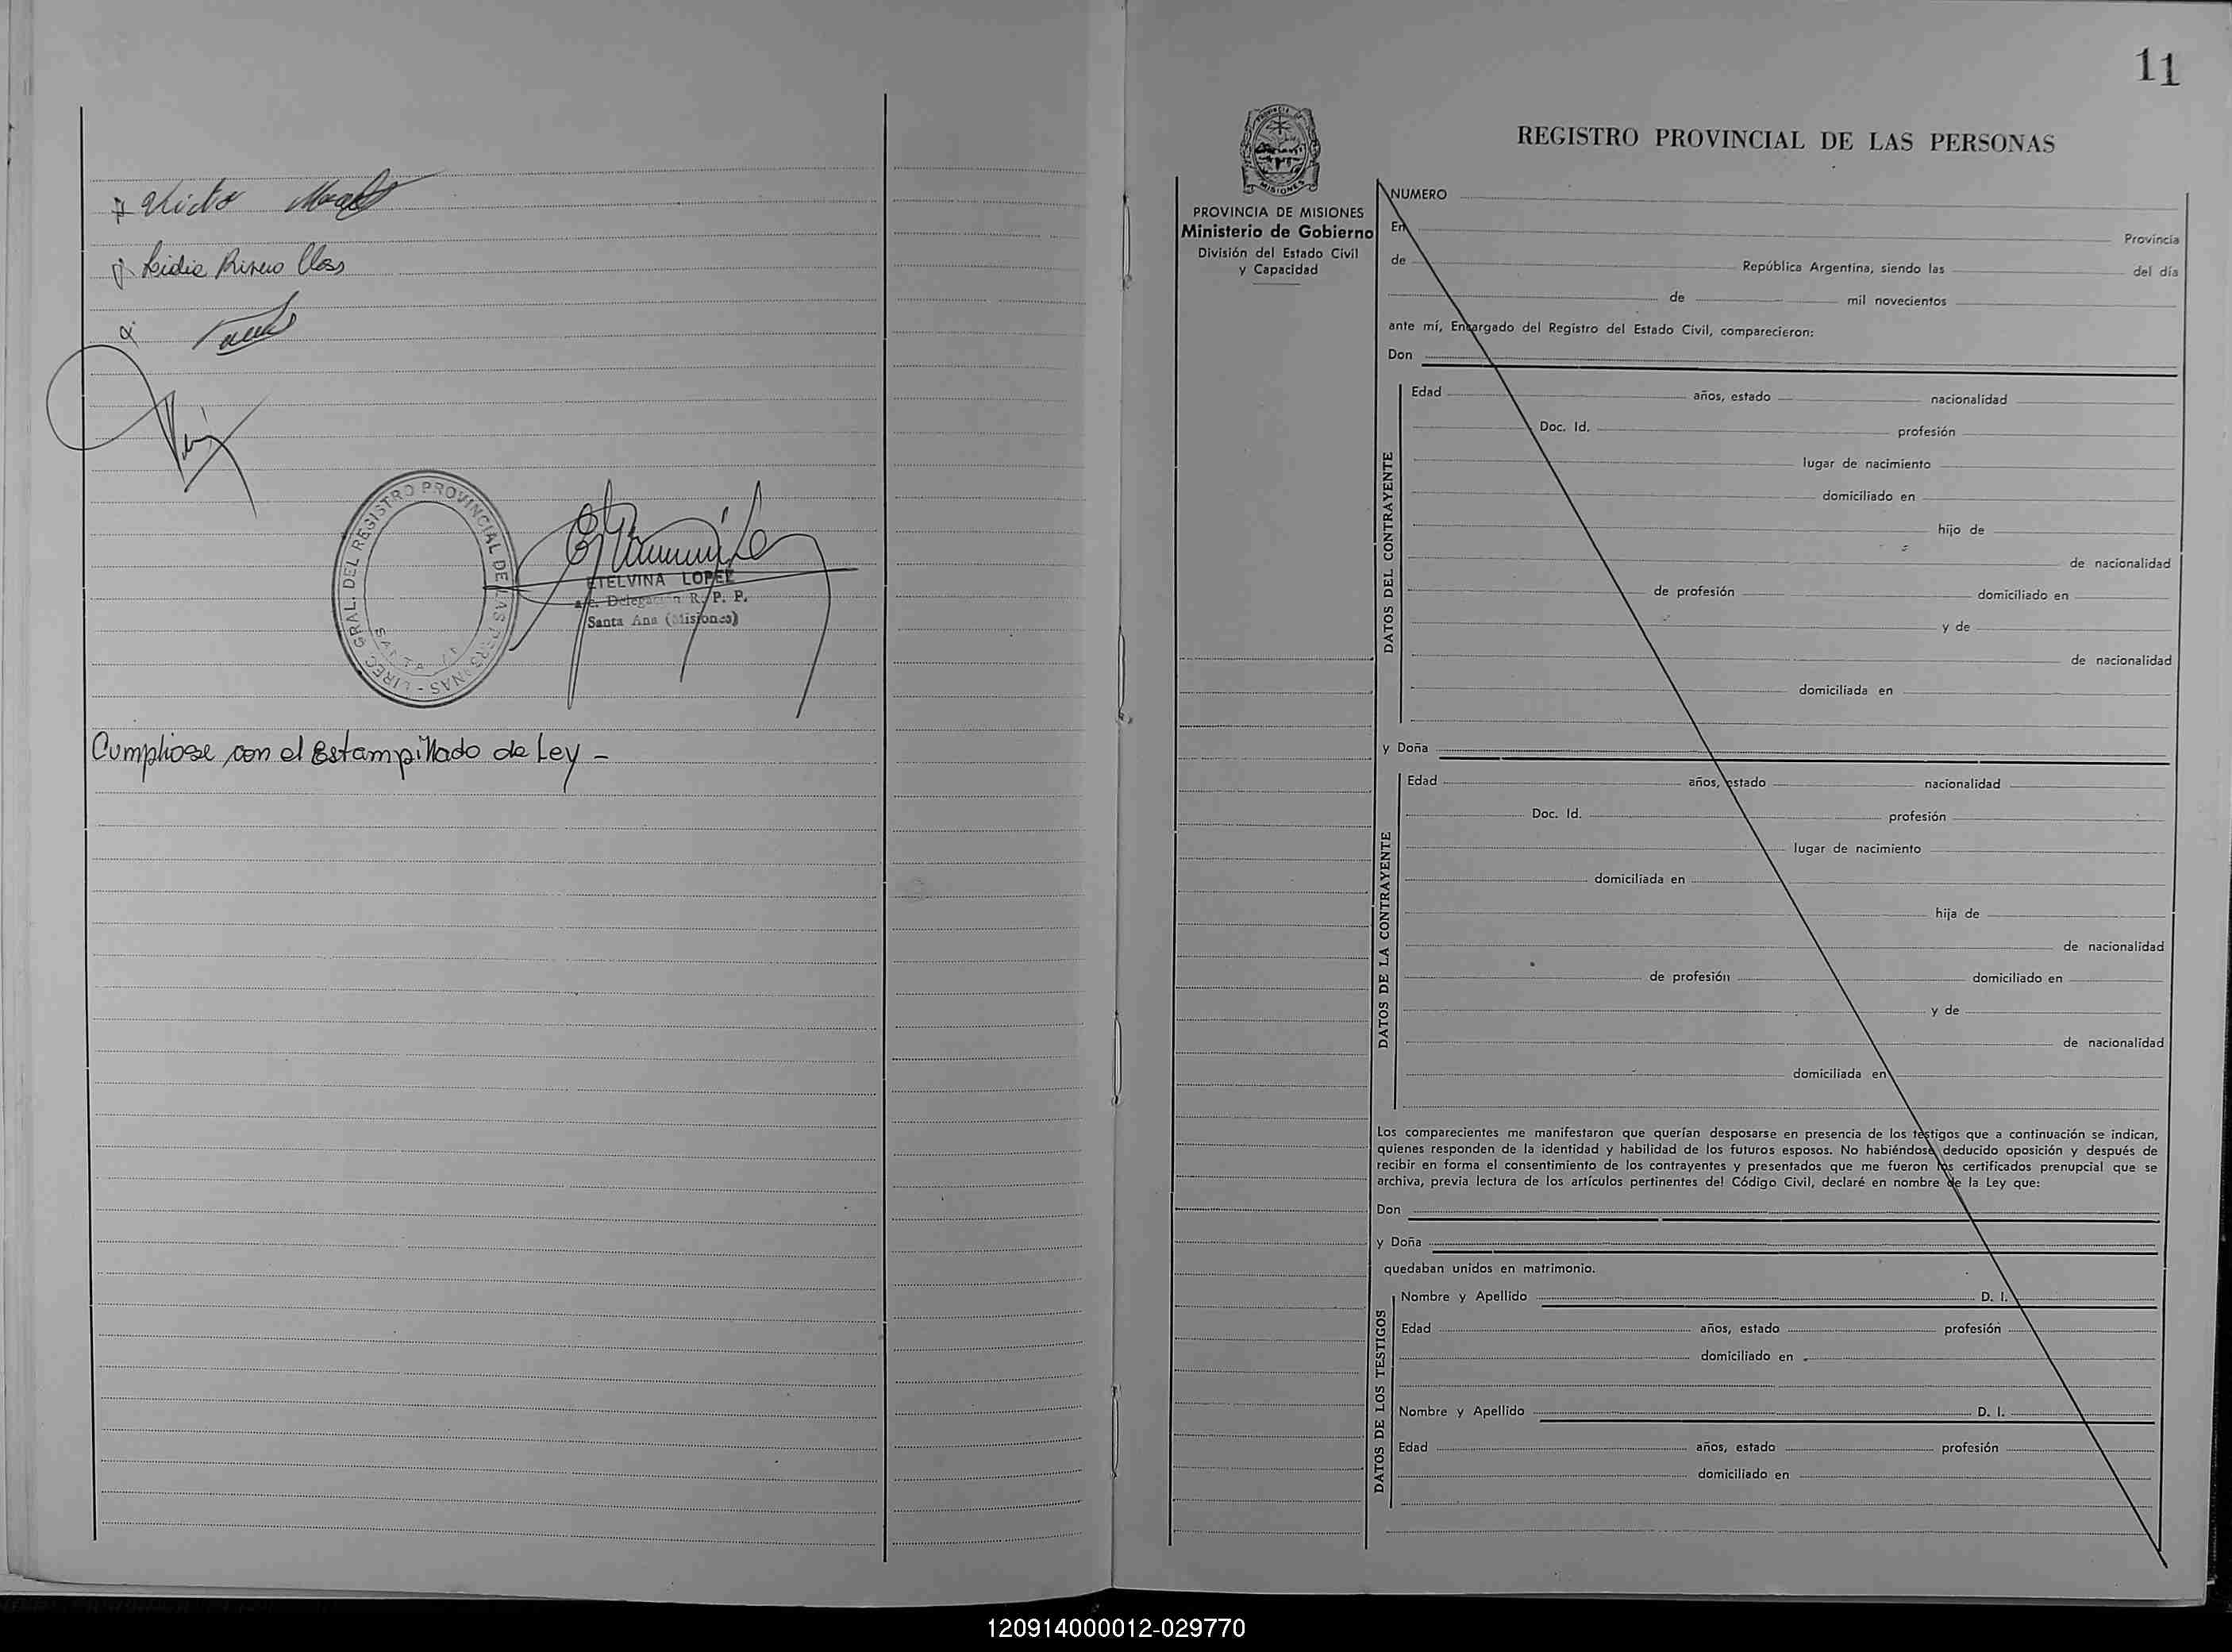 Cumpliose con el Estampillado de Ley -
DIREC. GRAL. DEL REGISTRO PROVINCIAL DE LAS PERSONAS -
SANTA
ETELVINA LOPEZ
a/c. Delegación R. P. P.
Santa Ana (Misiones)
11
PROVINCIA
MISIONES
REGISTRO PROVINCIAL DE LAS PERSONAS
PROVINCIA DE MISIONES
Ministerio de Gobierno
División del Estado Civil
y Capacidad
NUMERO
En Provincia
de República Argentina, siendo las del día
de mil novecientos
ante mí, Encargado del Registro del Estado Civil, comparecieron:
Don
DATOS DEL CONTRAYENTE
Edad años, estado nacionalidad
Doc. Id. profesión
lugar de nacimiento
domiciliado en
hijo de
de nacionalidad
de profesión domiciliado en
y de
de nacionalidad
domiciliada en
y Doña
DATOS DE LA CONTRAYENTE
Edad años, estado nacionalidad
Doc. Id. profesión
lugar de nacimiento
domiciliada en
hija de
de nacionalidad
de profesión domiciliado en
y de
de nacionalidad
domiciliada en
Los comparecientes me manifestaron que querían desposarse en presencia de los testigos que a continuación se indican,
quienes responden de la identidad y habilidad de los futuros esposos. No habiéndose deducido oposición y después de
recibir en forma el consentimiento de los contrayentes y presentados que me fueron los certificados prenupcial que se
archiva, previa lectura de los artículos pertinentes del Código Civil, declaré en nombre de la Ley que:
Don
y Doña
quedaban unidos en matrimonio.
DATOS DE LOS TESTIGOS
Nombre y Apellido D. I.
Edad años, estado profesión
domiciliado en
Nombre y Apellido D. I.
Edad años, estado profesión
domiciliado en
120914000012-029770